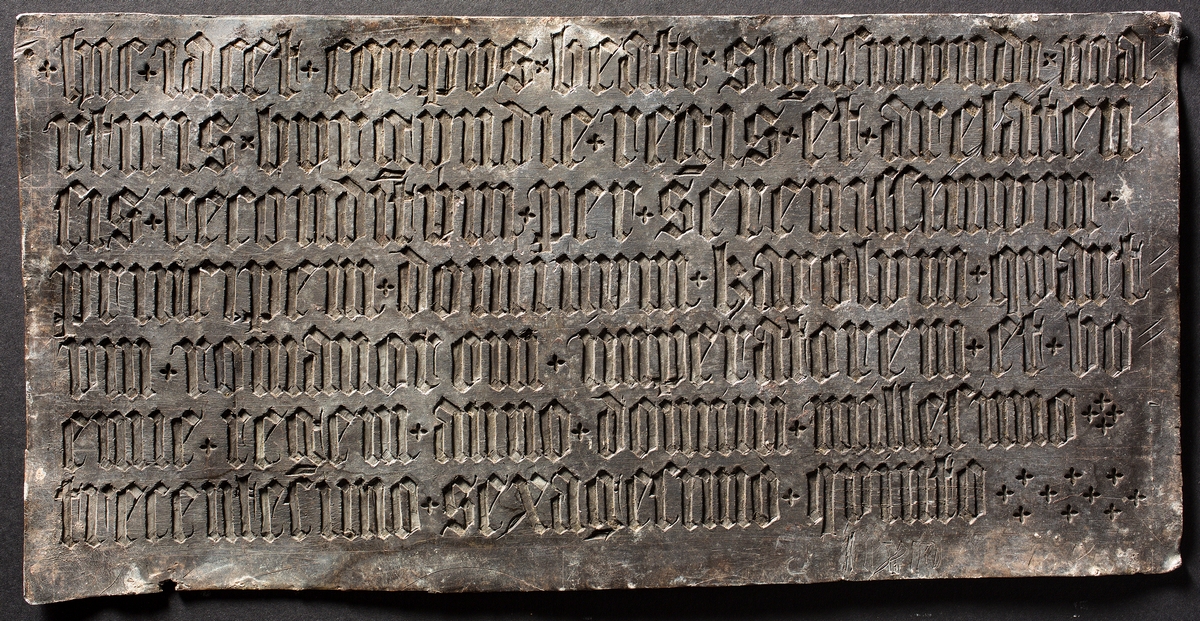 hic iacet corpus beati sigismundi ma
rtiris burgundie regis et arelaten
cis reconditum per serenissimum
principem dominum karolum quart
um romanorum imperatorem et bo
emie regem anno domini millesimo
trecentesimo sexagesimo quinto